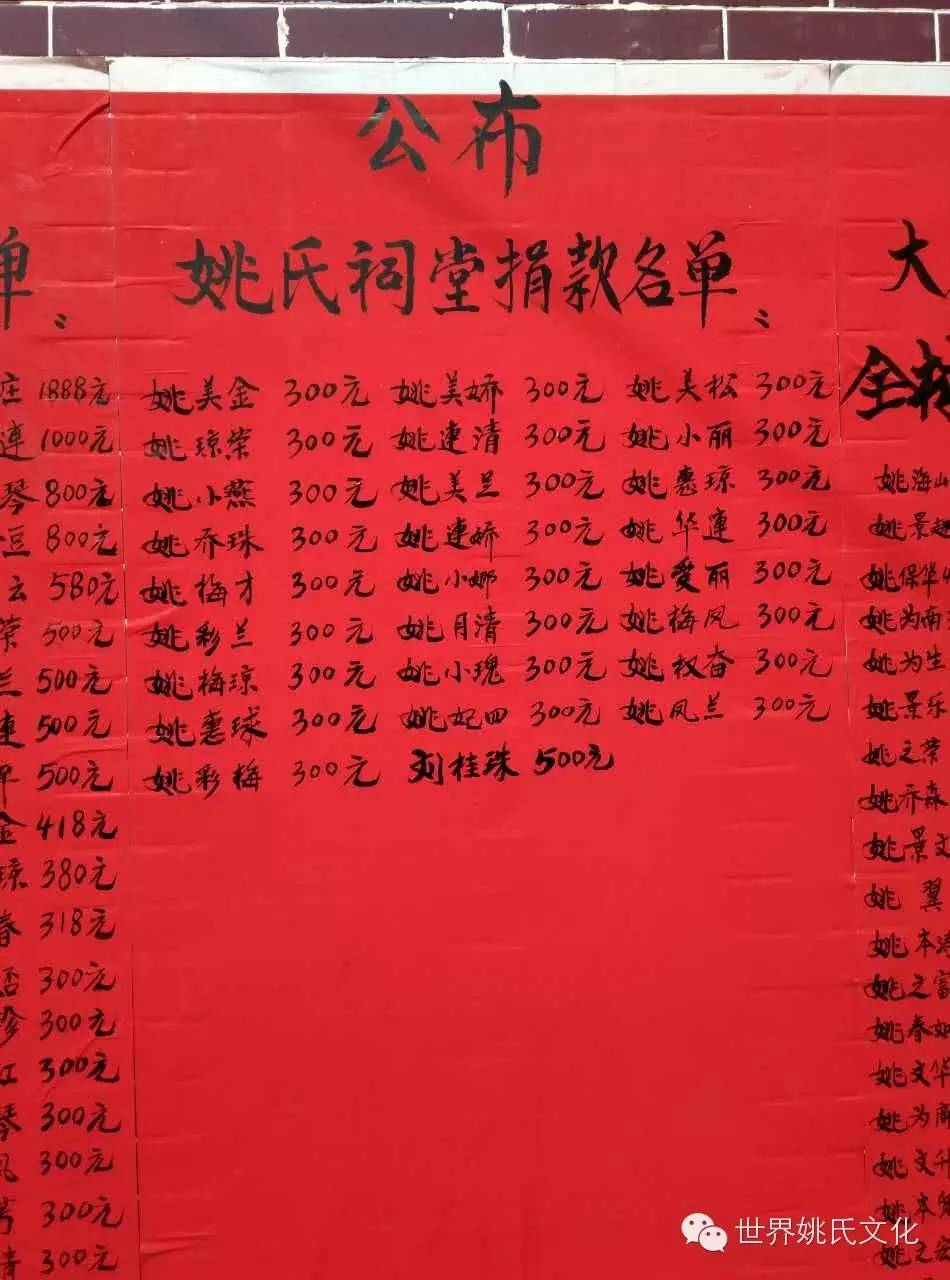 公布
姚氏祠堂捐款名单
姚美金 300元 姚美娇 300元 姚美松 300元
姚琼荣 300元 姚連清 300元 姚小丽 300元
姚小燕 300元 姚美兰 300元 姚惠琼 300元
姚乔珠 300元 姚連娇 300元 姚华連 300元
姚梅才 300元 姚小娜 300元 姚爱丽 300元
姚彩兰 300元 姚月清 300元 姚梅凤 300元
姚梅琼 300元 姚小瑰 300元 姚权香 300元
姚惠球 300元 姚妃四 300元 姚凤兰 300元
姚彩梅 300元 刘桂珠 500元
单
庄 1888元
連 1000元
琴 800元
豆 800元
云 580元
荣 500元
兰 500元
連 500元
500元
金 418元
琼 380元
春 318元
300元
珍 300元
红 300元
琴 300元
凤 300元
300元
清 300元
大
全村
姚海山
姚景超
姚保华
姚为南
姚为生
姚景乐
姚之荣
姚乔森
姚景文
姚翼
姚本涛
姚之富
姚春如
姚文华
姚为商
姚文升
姚本
姚之宏
世界姚氏文化